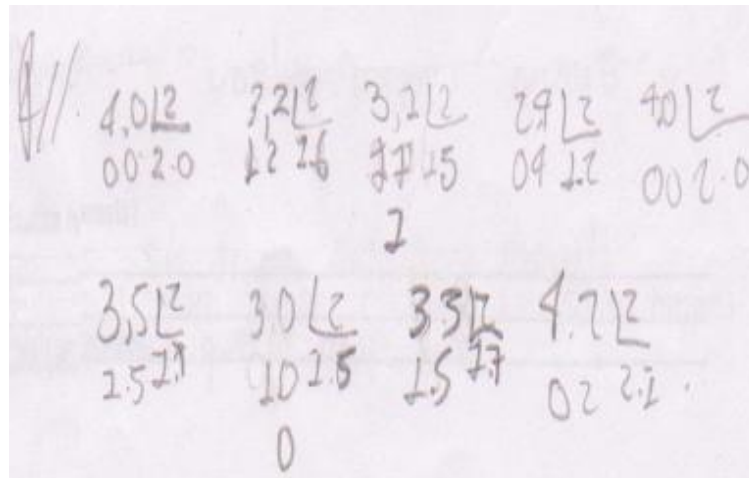 4,0 2 3,2 2 3,1 2 2,4 2 4,0 2
00 2.0 12 1.6 11 1.5 04 1.2 00 2.0
1
3,5 2 3,0 2 3.5 2 4.2 2
1.5 1.7 10 1.5 1.5 1.7 02 2.1.
0